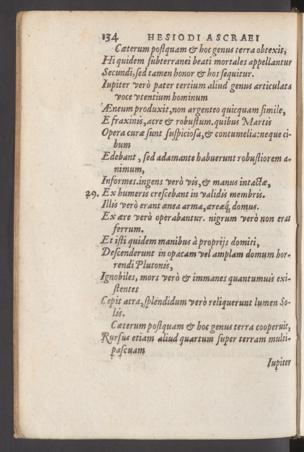 134 HESIODI ASCRAEI
Cæterum postquam & hoc genus terra obtexit,
Hi quidem subterranei beati mortales appellantur
Secundi, sed tamen honor & hos sequitur.
Iupiter verò pater tertium aliud genus articulata
voce vtentium hominum
Æneum produxit, non argenteo quicquam simile,
E fraxinis, acre & robustum. quibus Martis
Opera curæ sunt suspiciosa, & contumeliæ: neque ci-
bum
Edebant, sed adamante habuerunt robustiorem a-
nimum,
Informes. ingens verò vis, & manus intactæ,
29. Ex humeris crescebant in validis membris.
Illis verò erant ænea arma, æreæq́; domus.
Ex ære verò operabantur. nigrum verò non erat
ferrum.
Et isti quidem manibus à proprijs domiti,
Descenderunt in opacam vel amplam domum hor-
rendi Plutonis,
Ignobiles, mors verò & immanes quantumuis exi-
stentes
Cepit atra, splendidum verò reliquerunt lumen So-
lis.
Cæterum postquam & hoc genus terra cooperuit,
Rursus etiam aliud quartum super terram multi-
pascuam
Iupiter